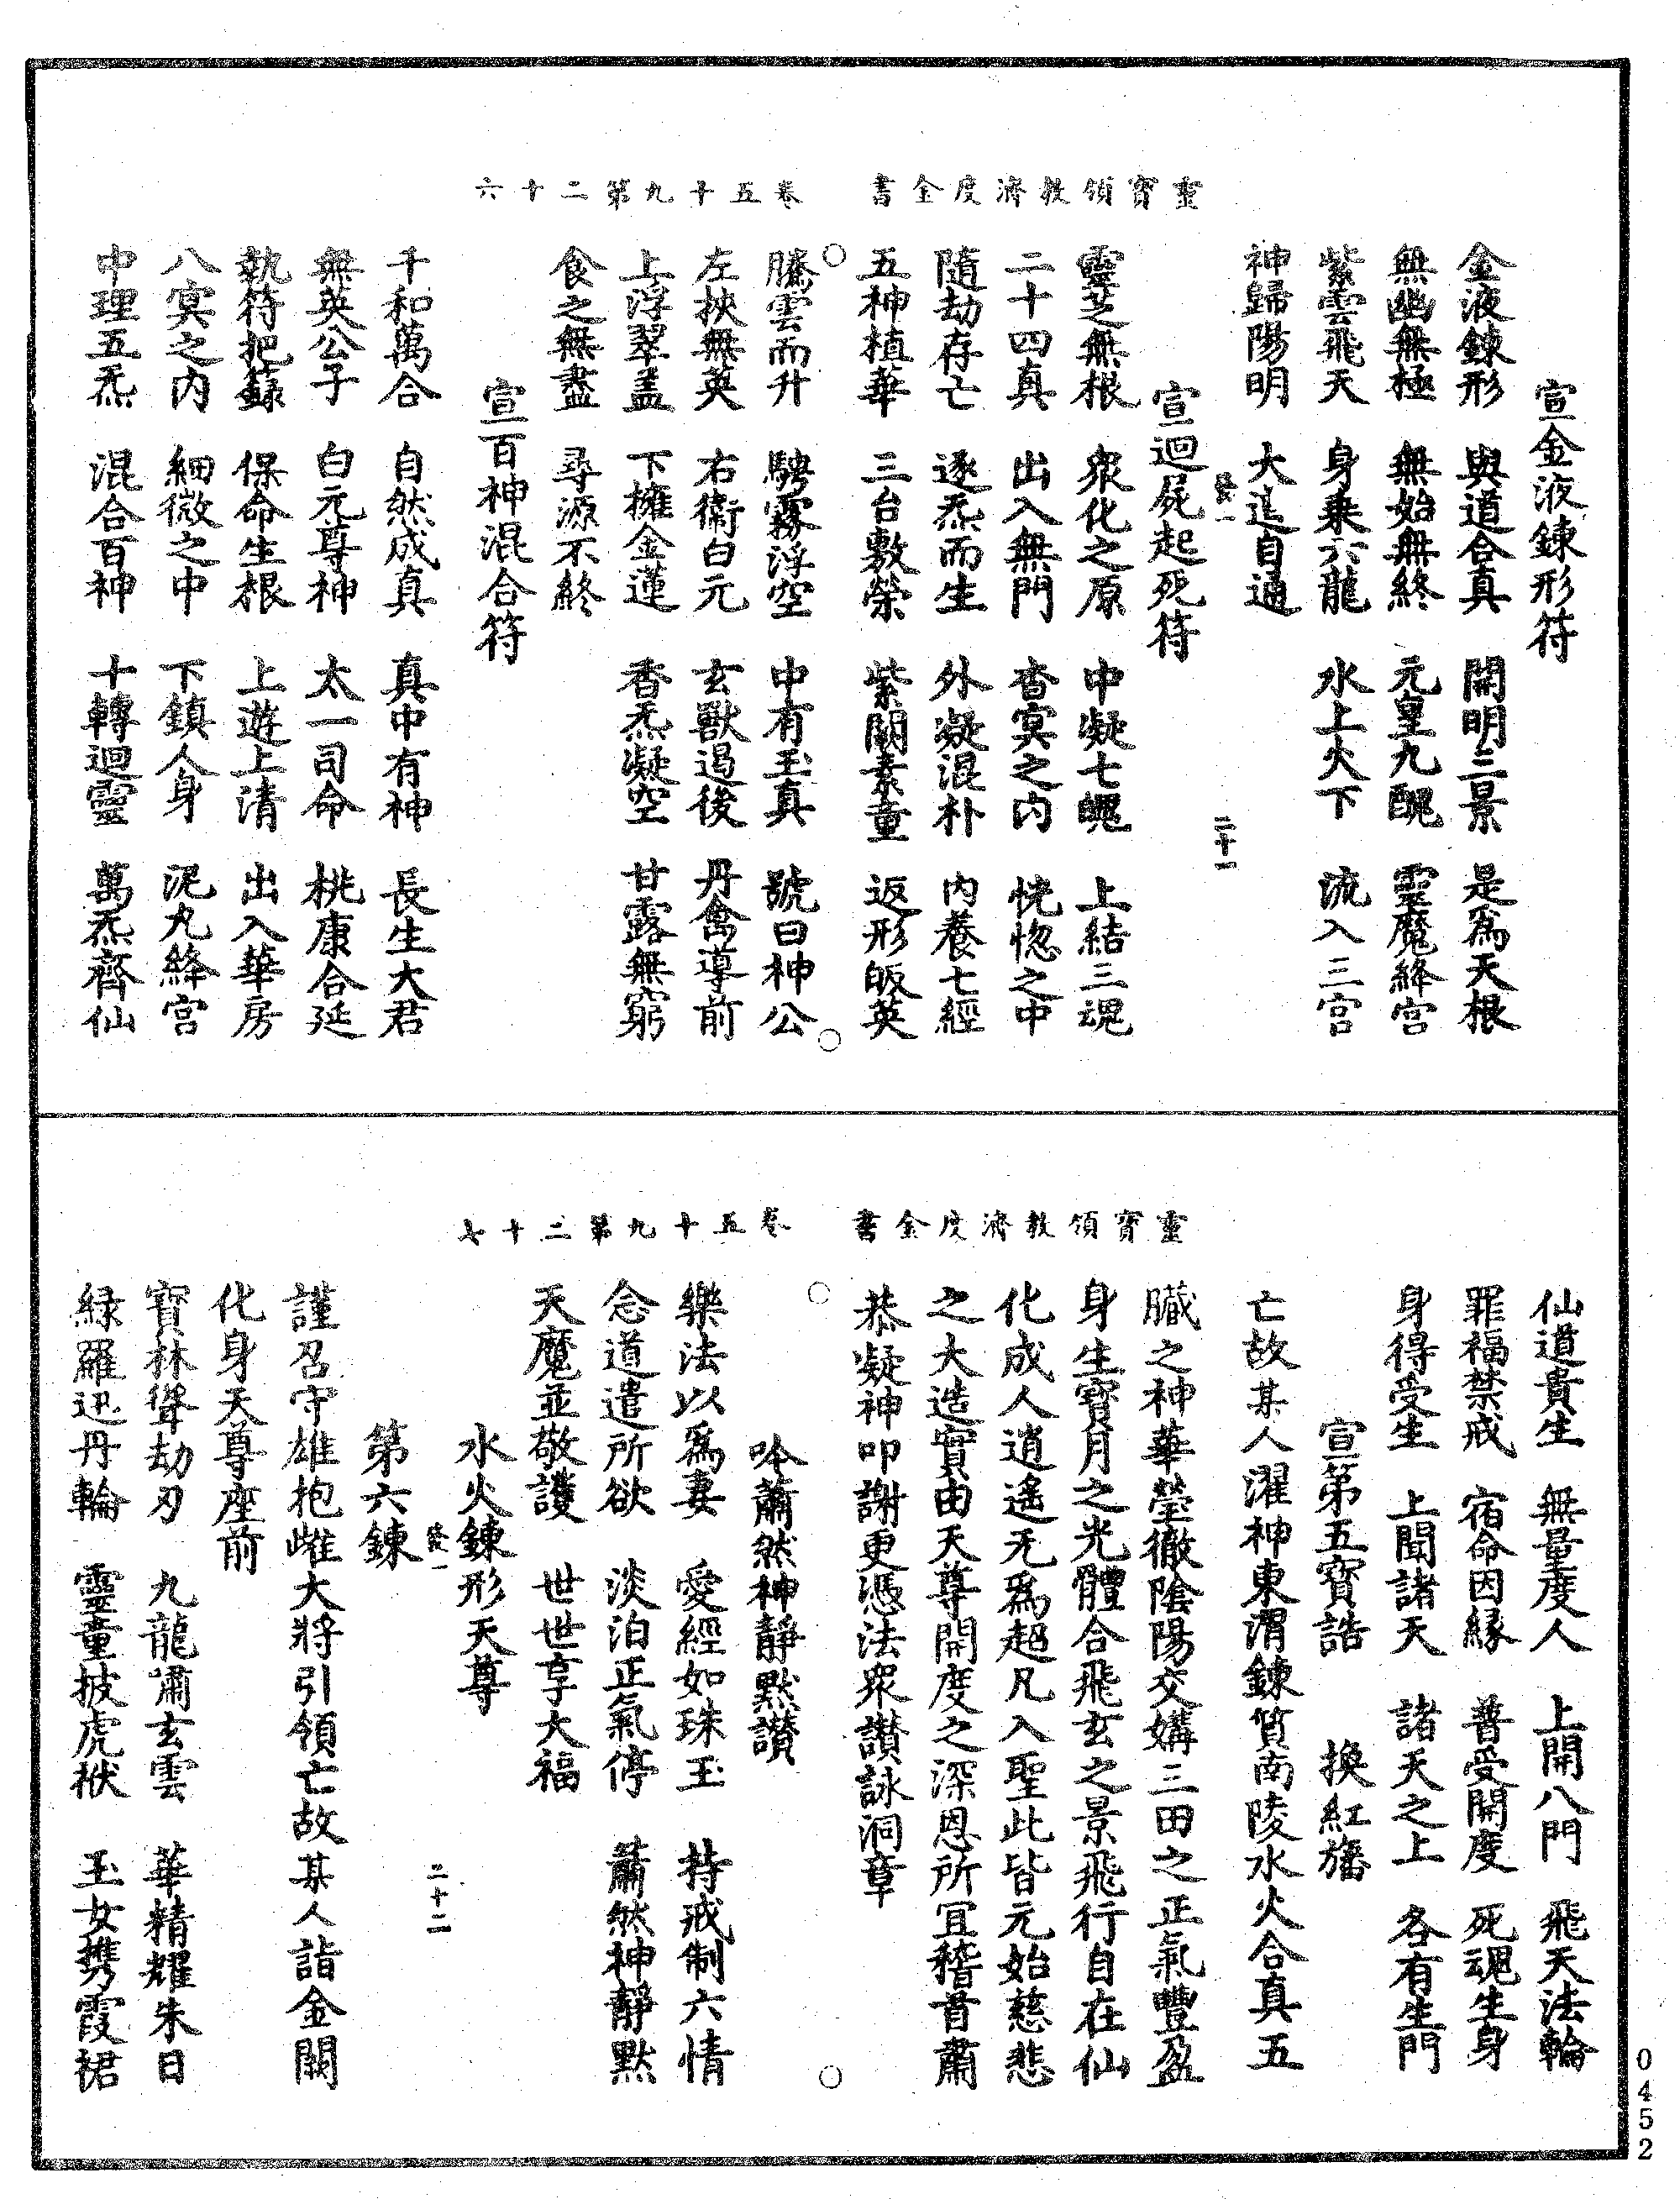 靈寶領教濟度金書　卷五十九第二十六
宣金液鍊形符
金液鍊形　與道合真　開明三景　是為天根
無幽無極　無始無終　元皇九醜　靈魔絳宮
紫雲飛天　身乗六龍　水上火下　流入三宮
神歸陽明　大道自通
二十一
宣迴屍起死符
靈芝無根　衆化之原　中凝七魄　上結三魂
二十四真　出入無門　杳冥之內　恍惚之中
隨劫存亡　逐炁而生　外凝混朴　內養七經
五神植華　三台敷榮　紫闕素童　返形皈英
騰雲而升　騁霧浮空　中有玉真　號曰神公
左挾無英　右衛白元　玄獸遏後　丹禽導前
上浮翠盖　下擁金蓮　香炁凝空　甘露無窮
食之無盡　尋源不終
宣百神混合符
千和萬合　自然成真　真中有神　長生大君
無英公子　白元尊神　太一司命　桃康合延
執符把籙　保命生根　上遊上清　出入華房
八冥之內　細微之中　下鎮人身　泥丸絳宮
中理五炁　混合百神　十轉迴靈　萬炁齊仙
靈寶領教濟度金書　卷五十九第二十七
仙道貴生　無量度人　上開八門　飛天法輪
罪福禁戒　宿命因緣　普受開度　死魂生身
身得受生　上聞諸天　諸天之上　各有生門
宣第五寶誥　換紅旛
亡故某人濯神東渭鍊質南陵水火合真五
臟之神華瑩徹陰陽交媾三田之正氣豐盈
身生寶月之光體合飛玄之景飛行自在仙
化成人逍遙无為超凡入聖此皆元始慈悲
之大造實由天尊開度之深恩所冝稽首肅
恭凝神叩謝更憑法衆讃詠洞章
吟蕭然神靜默讃
樂法以為妻　愛經如珠玉　持戒制六情
念道遣所欲　淡泊正氣停　蕭然神靜默
天魔並敬護　世世享大福
水火鍊形天尊
二十二
第六鍊
謹召守雄抱雌大將引領亡故某人詣金闕
化身天尊座前
寶林聳劫刃　九龍嘯玄雲　華精耀朱日
緑羅迅丹輪　靈童披虎袱　玉女携霞裙
0452